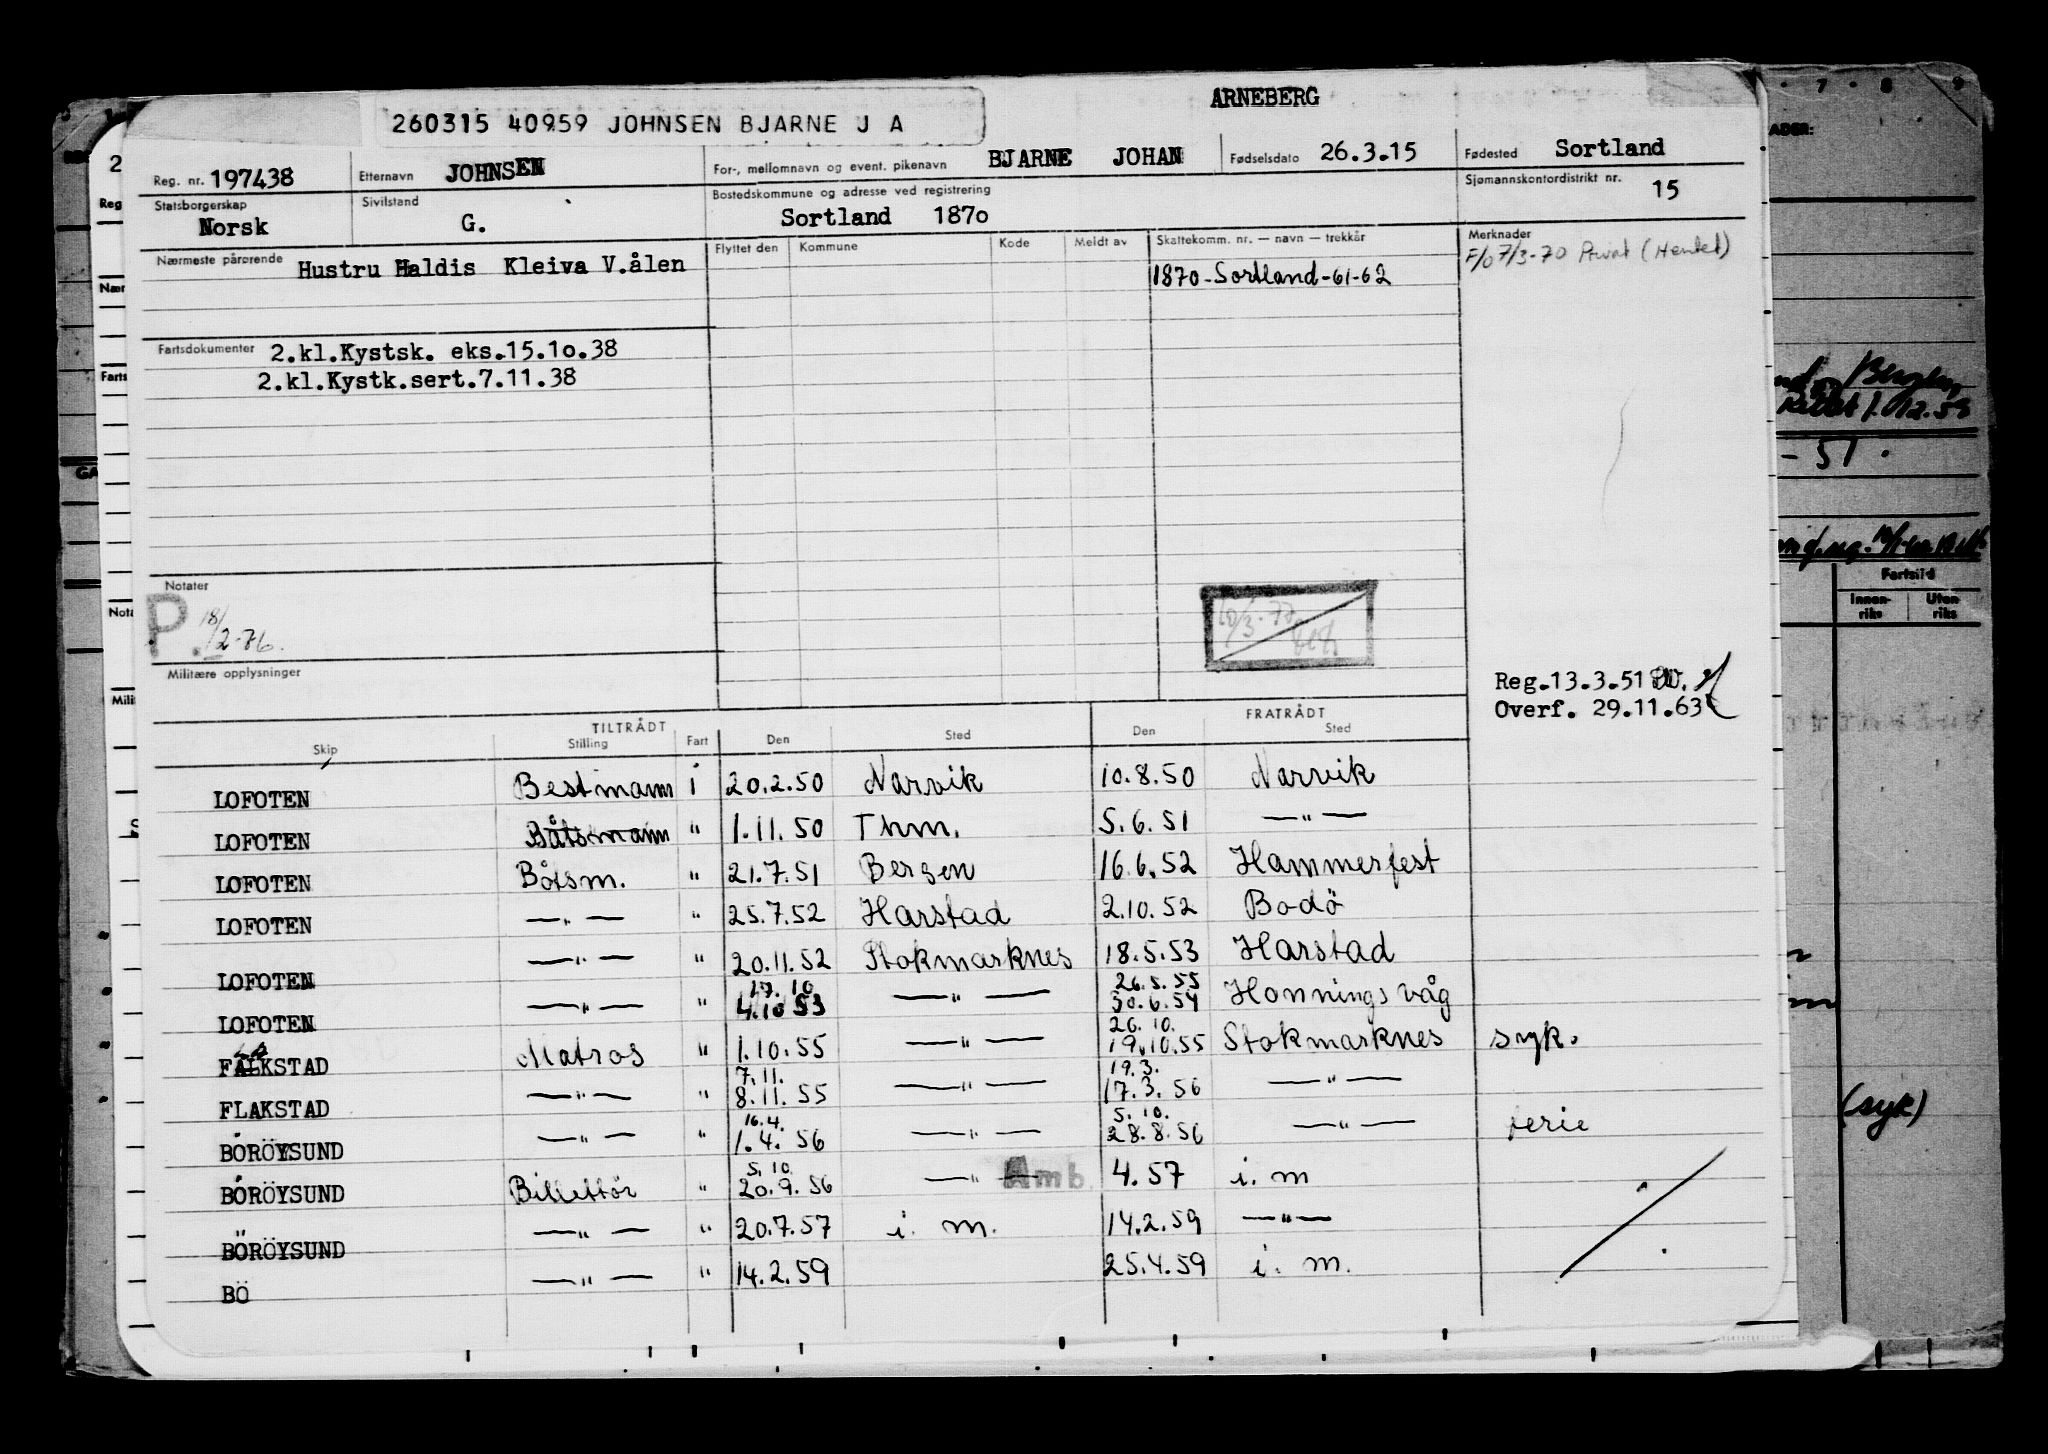 ARNEBERG
260315 40959 JOHNSEN BJARNE J A
Reg. nr. 197438 Etternavn JOHNSEN For-, mellomnavn og event. pikenavn BJARNE JOHAN Fødselsdato 26.3.15 Fødested Sortland
Statsborgerskap Norsk Sivilstand G. Bostedskommune og adresse ved registrering Sortland 1870 Sjømannskontordistrikt nr. 15
Nærmeste pårørende Hustru Haldis Kleiva V.ålen Flyttet den Kommune Kode Meldt av Skattekomm. nr. — navn — trekkår Merknader
1870-Sortland-61-62 F/o 7/3-70 Privat (Hentet)
Fartsdokumenter 2.kl.Kystsk. eks.15.10.38
2.kl.Kystk.sert.7.11.38
Notater
P. 18/2-76.
Militære opplysninger
Reg.13.3.51
Overf. 29.11.63
TILTRÅDT FRATRÅDT
Skip Stilling Fart Den Sted Den Sted
LOFOTEN Bestmann i 20.2.50 Narvik 10.8.50 Narvik
LOFOTEN Båtsmann " 1.11.50 Thm. 5.6.51 —"—
LOFOTEN Båtsm. " 21.7.51 Bergen 16.6.52 Hammerfest
LOFOTEN —"— " 25.7.52 Harstad 2.10.52 Bodö
LOFOTEN —"— " 20.11.52 Stokmarknes 18.5.53 Harstad
17.10 26.5.55
LOFOTEN —"— " 4.10 53 —"— 30.6.54 Honningsvåg
26.10.
FALKSTAD Matros " 1.10.55 —"— 19.10.55 Stokmarknes syk.
7.11. 19.3.
FLAKSTAD —"— " 8.11.55 —"— 17.3.56 —"—
16.4. 5.10.
BÖRÖYSUND —"— " 1.4.56 —"— 28.8.56 —"— ferie
5.10.
BÖRÖYSUND Billettör " 20.9.56 —"— Amb. 4.57 i. m
BÖRÖYSUND —"— " 20.7.57 i. m. 14.2.59 —"—
BÖ —"— " 14.2.59 25.4.59 i. m.
7 8 9
Fartstid
Innen-riks Uten-riks
- 51.
(syk)